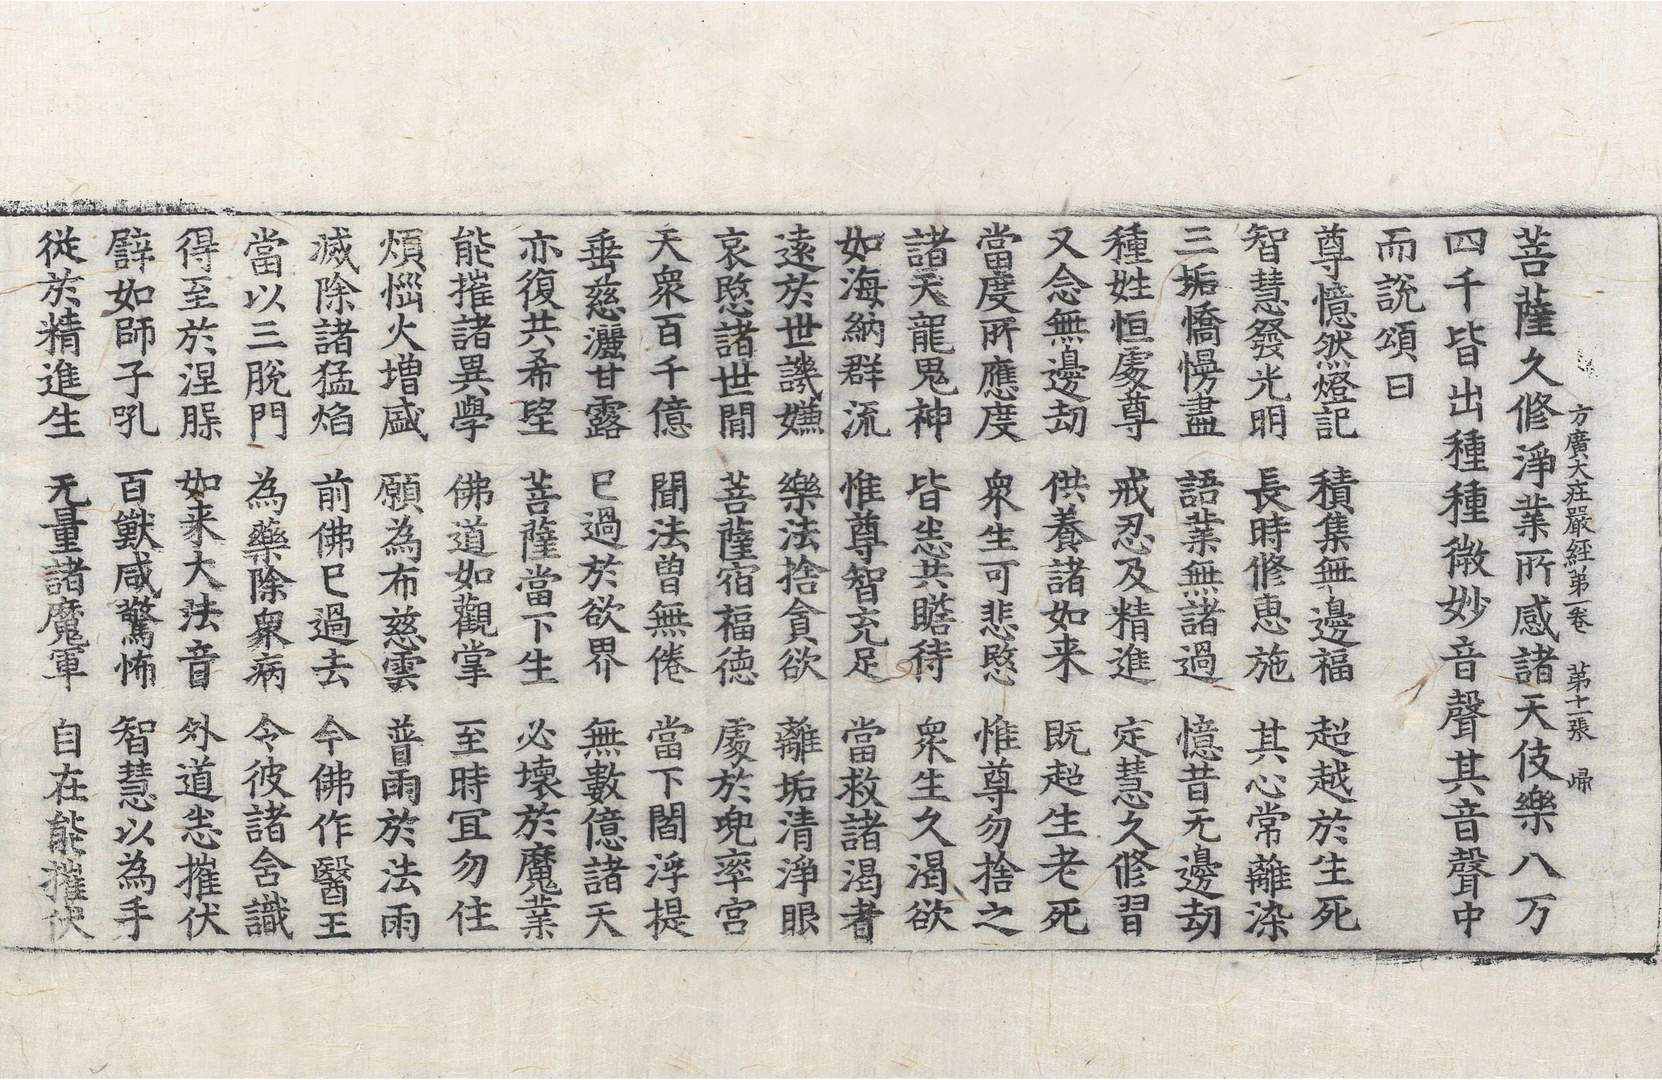 方廣大莊嚴經第一卷 第十一張 歸
菩薩久修淨業所感諸天伎樂八万
四千皆出種種微妙音聲其音聲中
而說頌曰
尊憶然燈記 積集無邊福 超越於生死
智慧發光明 長時修惠施 其心常離染
三垢憍慢盡 語業無諸過 憶昔无邊劫
種姓恒處尊 戒忍及精進 定慧久修習
又念無邊劫 供養諸如来 既超生老死
當度所應度 衆生可悲愍 惟尊勿捨之
諸天龍鬼神 皆悉共瞻待 衆生久渴欲
如海納群流 惟尊智充足 當救諸渴者
遠於世譏嫌 樂法捨貪欲 離垢清淨眼
哀愍諸世閒 菩薩宿福德 處於兜率宮
天衆百千億 聞法曾無倦 當下閻浮提
垂慈灑甘露 已過於欲界 無數億諸天
亦復共希望 菩薩當下生 必壞於魔業
能摧諸異學 佛道如觀掌 至時冝勿住
煩惱火增盛 願為布慈雲 普雨於法雨
滅除諸猛焰 前佛已過去 今佛作醫王
當以三脫門 為藥除衆病 令彼諸含識
得至於涅槃 如来大法音 外道悉摧伏
譬如師子吼 百獸咸驚怖 智慧以為手
從於精進生 无量諸魔軍 自在能摧伏